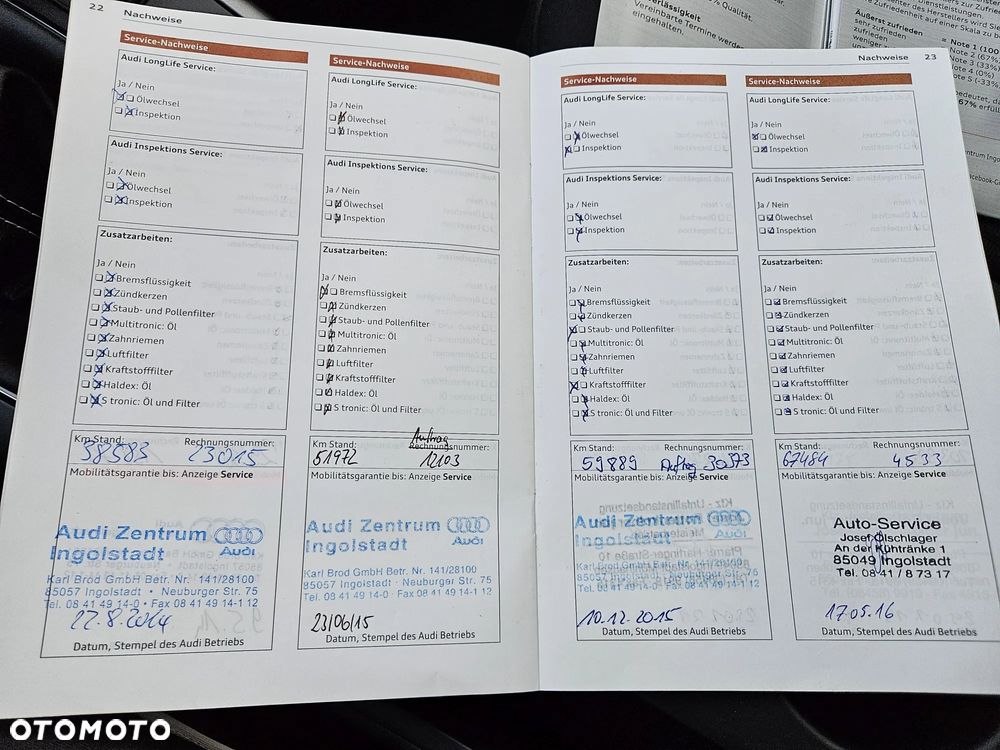 22
Nachweise
Service-Nachweise
Audi LongLife Service:
Ja / Nein
Ölwechsel
Inspektion
Audi Inspektions Service:
Ja / Nein
Ölwechsel
Inspektion
Zusatzarbeiten:
Ja / Nein
Bremsflüssigkeit
Zündkerzen
Staub- und Pollenfilter
Multitronic: Öl
Zahnriemen
Luftfilter
Kraftstofffilter
Haldex: Öl
S tronic: Öl und Filter
Km Stand: Rechnungsnummer:
38583 23015
Mobilitätsgarantie bis: Anzeige Service
Audi Zentrum
Ingolstadt
Audi
Karl Brod GmbH Betr. Nr. 141/28100
85057 Ingolstadt • Neuburger Str. 75
Tel. 08 41 49 14-0 • Fax 08 41 49 14-1 12
22.8.2014
Datum, Stempel des Audi Betriebs
Service-Nachweise
Audi LongLife Service:
Ja / Nein
Ölwechsel
Inspektion
Audi Inspektions Service:
Ja / Nein
Ölwechsel
Inspektion
Zusatzarbeiten:
Ja / Nein
Bremsflüssigkeit
Zündkerzen
Staub- und Pollenfilter
Multitronic: Öl
Zahnriemen
Luftfilter
Kraftstofffilter
Haldex: Öl
S tronic: Öl und Filter
Auftrag
Km Stand: Rechnungsnummer:
51972 12103
Mobilitätsgarantie bis: Anzeige Service
Audi Zentrum
Ingolstadt
Audi
Karl Brod GmbH Betr. Nr. 141/28100
85057 Ingolstadt • Neuburger Str. 75
Tel. 08 41 49 14-0 • Fax 08 41 49 14-1 12
23/06/15
Datum, Stempel des Audi Betriebs
Nachweise 23
Service-Nachweise
Audi LongLife Service:
Ja / Nein
Ölwechsel
Inspektion
Audi Inspektions Service:
Ja / Nein
Ölwechsel
Inspektion
Zusatzarbeiten:
Ja / Nein
Bremsflüssigkeit
Zündkerzen
Staub- und Pollenfilter
Multitronic: Öl
Zahnriemen
Luftfilter
Kraftstofffilter
Haldex: Öl
S tronic: Öl und Filter
Km Stand: Rechnungsnummer:
59889 Auftrag 30373
Mobilitätsgarantie bis: Anzeige Service
Audi Zentrum
Ingolstadt
Audi
Karl Brod GmbH Betr. Nr. 141/28100
85057 Ingolstadt • Neuburger Str. 75
Tel. 08 41 49 14-0 • Fax 08 41 49 14-1 12
10.12.2015
Datum, Stempel des Audi Betriebs
Service-Nachweise
Audi LongLife Service:
Ja / Nein
Ölwechsel
Inspektion
Audi Inspektions Service:
Ja / Nein
Ölwechsel
Inspektion
Zusatzarbeiten:
Ja / Nein
Bremsflüssigkeit
Zündkerzen
Staub- und Pollenfilter
Multitronic: Öl
Zahnriemen
Luftfilter
Kraftstofffilter
Haldex: Öl
S tronic: Öl und Filter
Km Stand: Rechnungsnummer:
67484 4533
Mobilitätsgarantie bis: Anzeige Service
Auto-Service
Josef Ölschlager
An der Kühtränke 1
85049 Ingolstadt
Tel. 08 41 / 8 73 17
17.05.16
Datum, Stempel des Audi Betriebs
Qualität.
Vereinbarte Termine werden
eingehalten.
Äußerst zufrieden
sehr zufrieden
zufrieden
weniger
= Note 1 (100
Note 2 (67%
Note 3 (33%)
Note 4 (0%)
Note 5 (-33%
67% erfüll
OTOMOTO